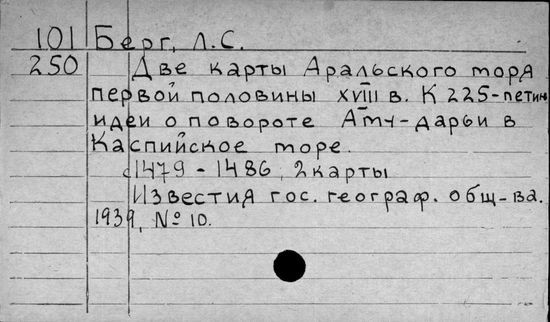 101 Берг, Л.С.
250 Две карты Аральского моря
первой половины XVIII в. К 225-летию
идеи о повороте Аму-дарьи в
Каспийское море.
с1479-1486, 2 карты
Известия гос. географ. общ-ва.
1939, № 10.